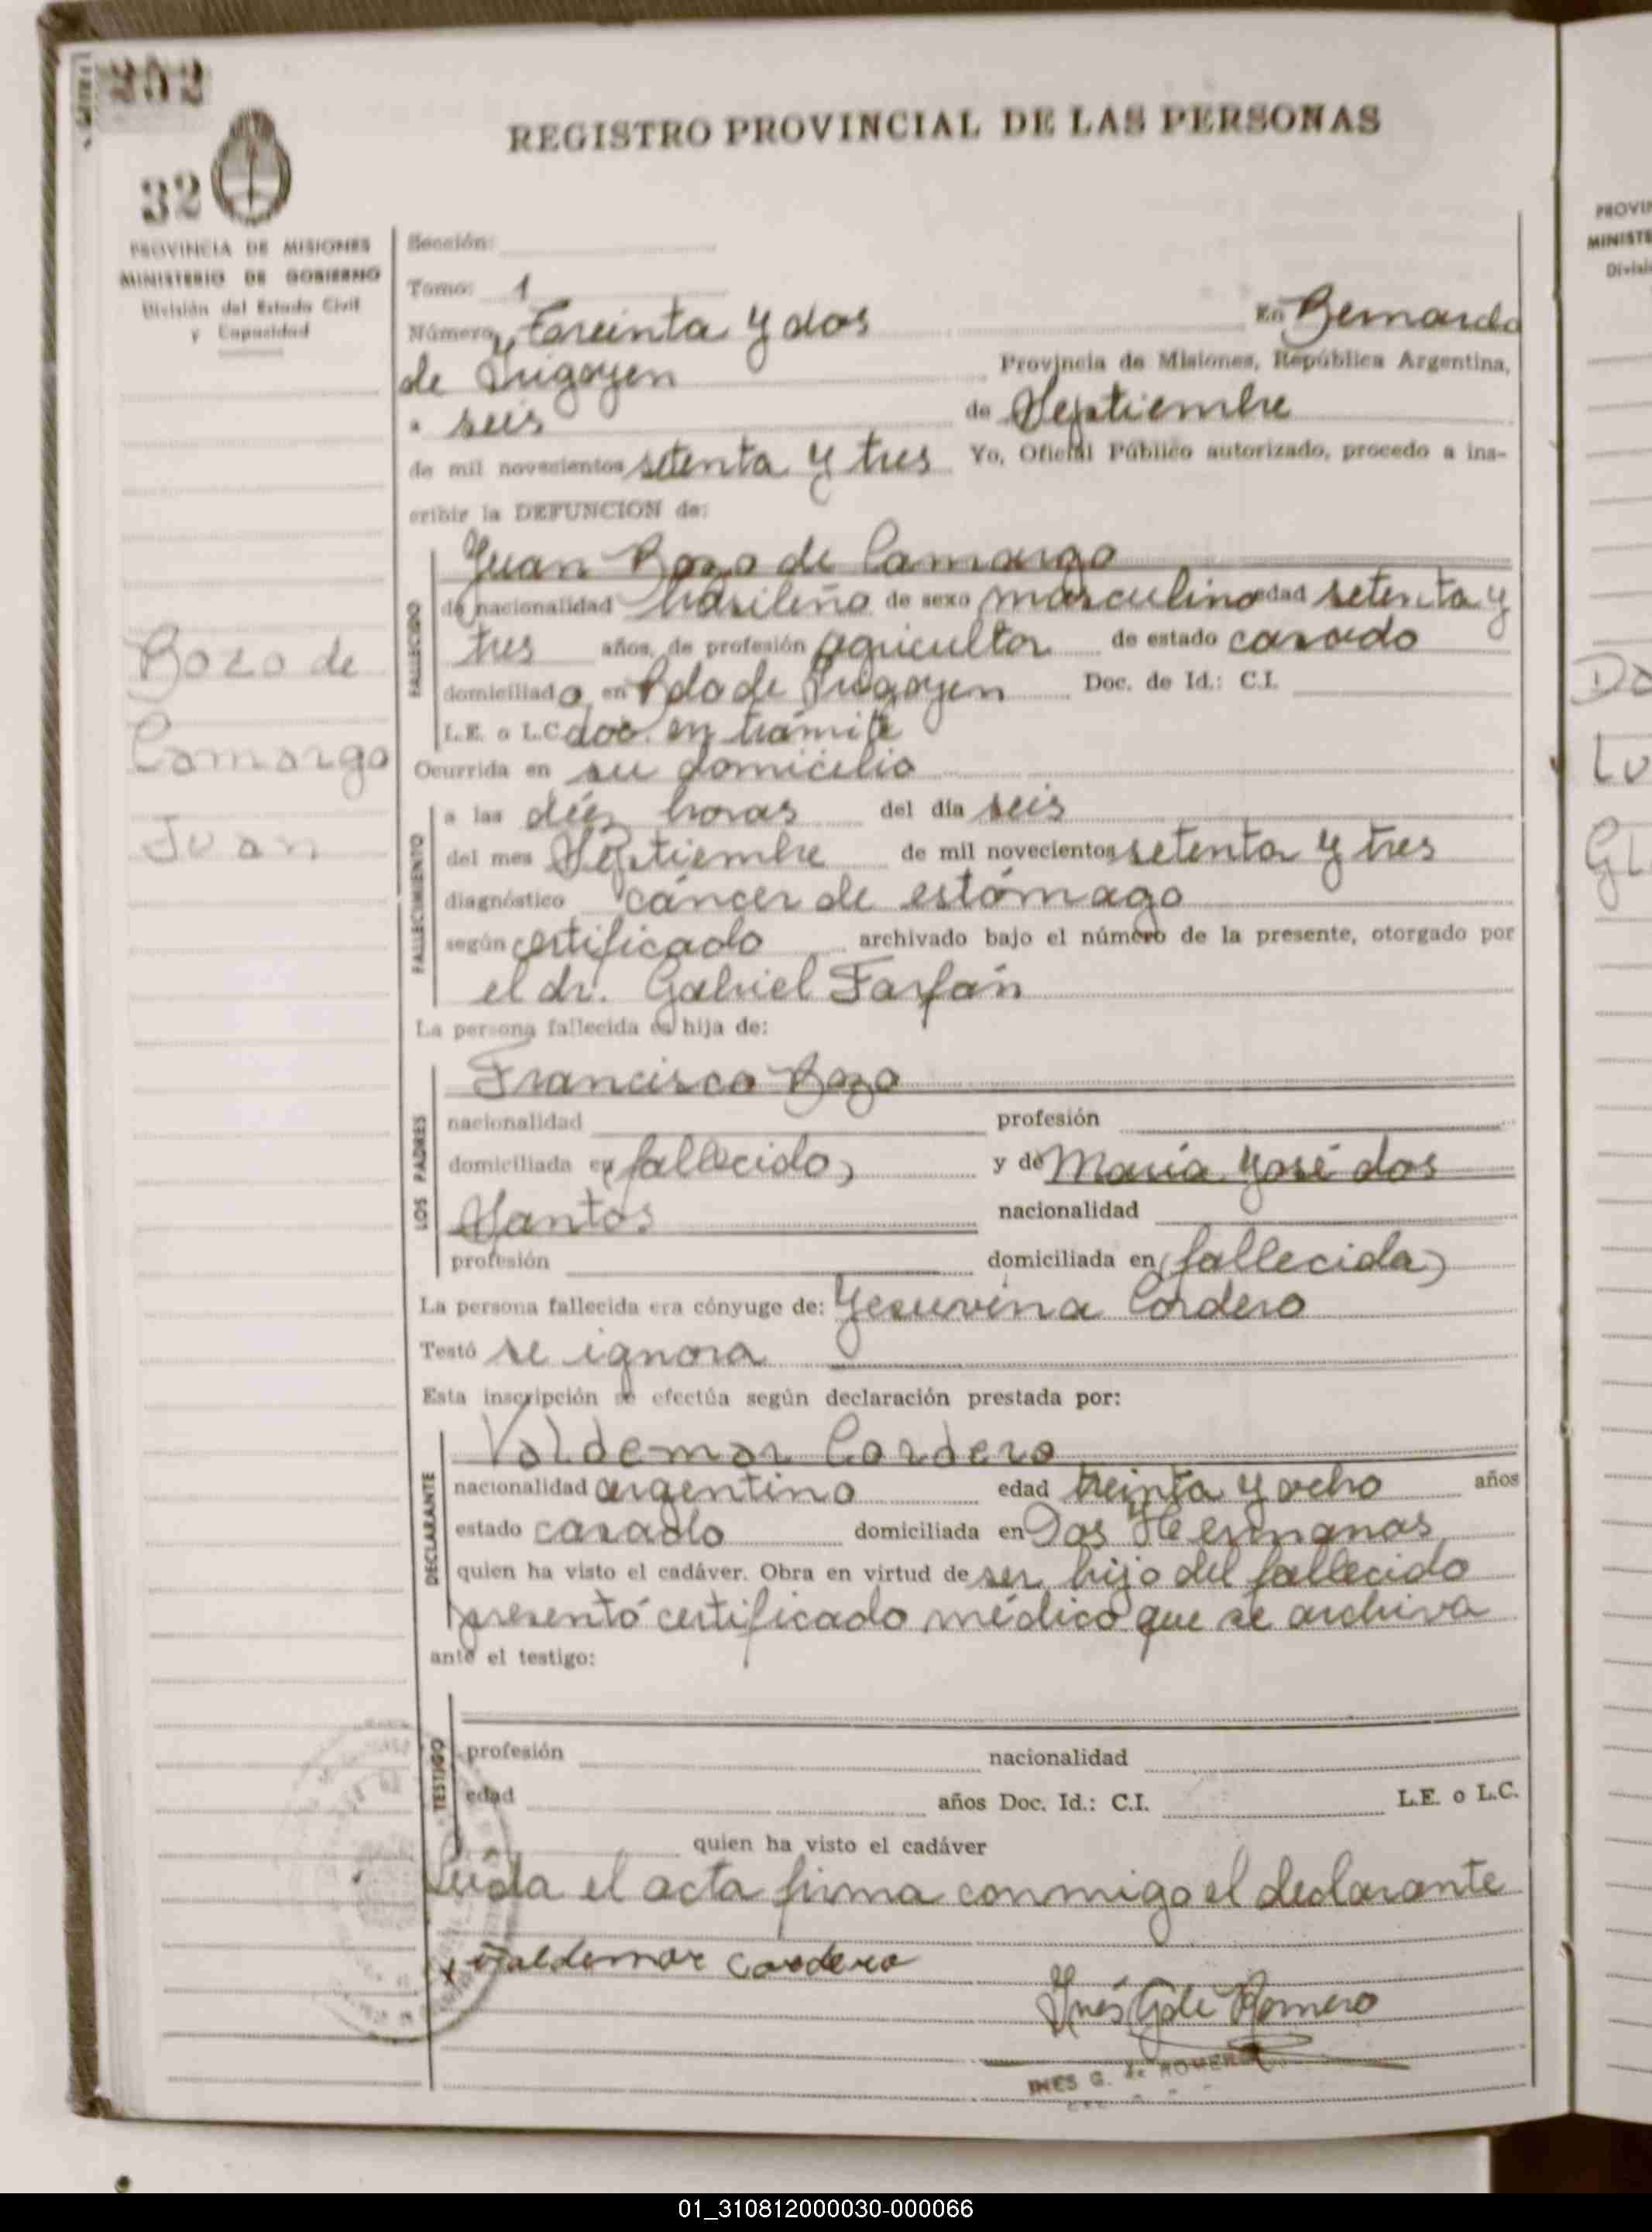 252
REGISTRO PROVINCIAL DE LAS PERSONAS
32
PROVINCIA DE MISIONES
MINISTERIO DE GOBIERNO
División del Estado Civil
y Capacidad
Sección:
Tomo: 1
Número, Treinta y dos En Bernardo
de Irigoyen Provincia de Misiones, República Argentina,
a seis de Septiembre
de mil novecientos setenta y tres Yo, Oficial Público autorizado, procedo a ins-
cribir la DEFUNCION de:
FALLECIDO
Juan Bozo de Camargo
de nacionalidad brasileña de sexo masculino edad setenta y
tres años, de profesión agricultor de estado casado
domiciliado en Bdo de Irigoyen Doc. de Id.: C.I.
L.E. o L.C. doc. en trámite
Ocurrida en su domicilio
FALLECIMIENTO
a las diéz horas del día seis
del mes Septiembre de mil novecientos setenta y tres
diagnóstico cáncer de estómago
según certificado archivado bajo el número de la presente, otorgado por
el dr. Gabriel Farfán
La persona fallecida es hija de:
LOS PADRES
Francisco Bozo
nacionalidad profesión
domiciliada en (fallecido) y de María José dos
Santos nacionalidad
profesión domiciliada en (fallecida)
La persona fallecida era cónyuge de: Jesuvina Cordero
Testó se ignora
Esta inscripción se efectúa según declaración prestada por:
DECLARANTE
Valdemar Cordero
nacionalidad argentino edad treinta y ocho años
estado casado domiciliada en Dos Hermanas
quien ha visto el cadáver. Obra en virtud de ser hijo del fallecido
presentó certificado médico que se archiva
ante el testigo:
TESTIGO
profesión nacionalidad
edad años Doc. Id.: C.I. L.E. o L.C.
quien ha visto el cadáver
Leída el acta firma conmigo el declarante
x Valdemar Cordero
Inés G de Romero
INES G. de ROMERO
Bozo de
Camargo
Juan
PROVIN
MINISTE
Divisi
01_310812000030-000066